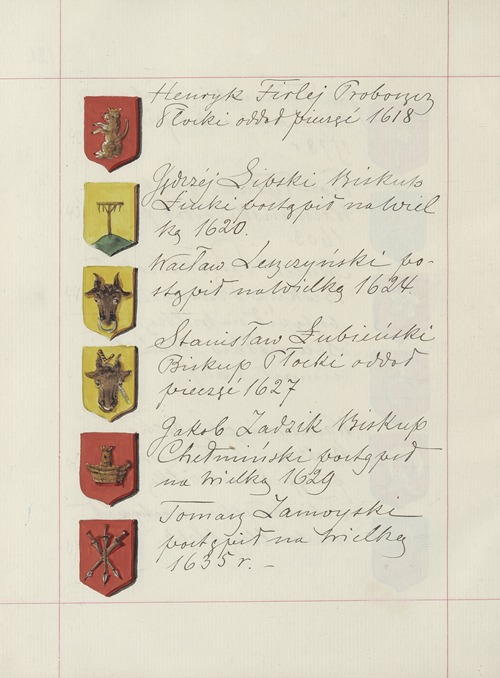 Henryk Firlej Proboszcz
Płocki oddał pieczęć 1618
Jędrzéj Lipski Biskup
Łucki postąpił na wiel
ką 1620.
Wacław Leszczyński po-
stąpił na wielką 1624.
Stanisław Łubieński
Biskup Płocki oddał
pieczęć 1627
Jakob Zadzik Biskup
Chełmiński postąpił
na wielką 1629
Tomasz Zamoyski
postąpił na wielką
1635 r. –